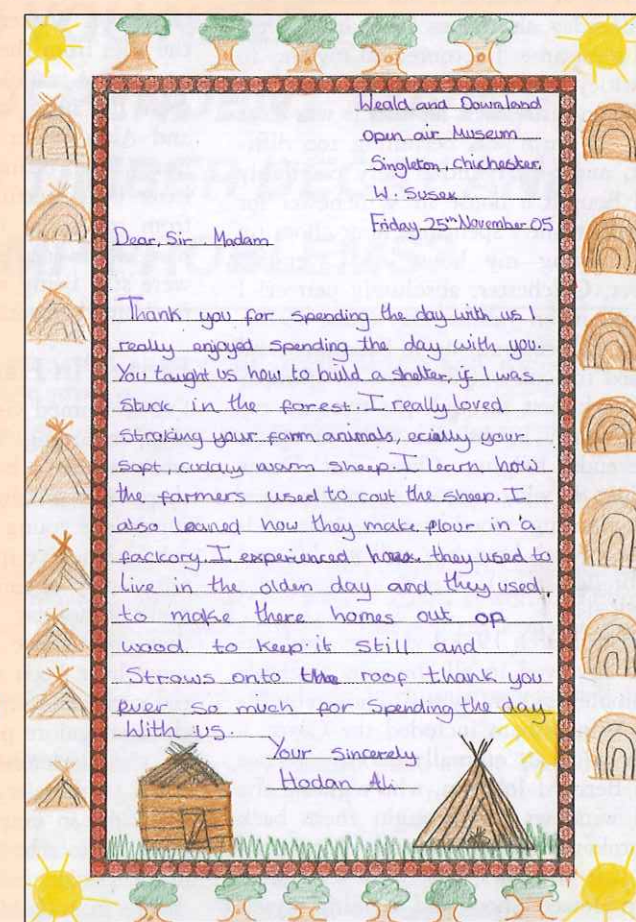 Weald and Downland
open air Museum
Singleton, chichester,
W. Susex
Friday 25th November 05
Dear, Sir. Madam
Thank you for spending the day with us I
really enjoyed spending the day with you.
You taught us how to build a shelter, if I was
stuck in the forest. I really loved
stroking your farm animals, ecially your
soft, cuddly warm sheep. I learn how
the farmers used to cout the sheep. I
also leaned how they make flour in a
fackory. I experienced how they used to
live in the olden day and they used
to make there homes out of
wood to keep it still and
Straws onto the roof thank you
ever so much for spending the day
With us.
Your Sincerely
Hodan Ali